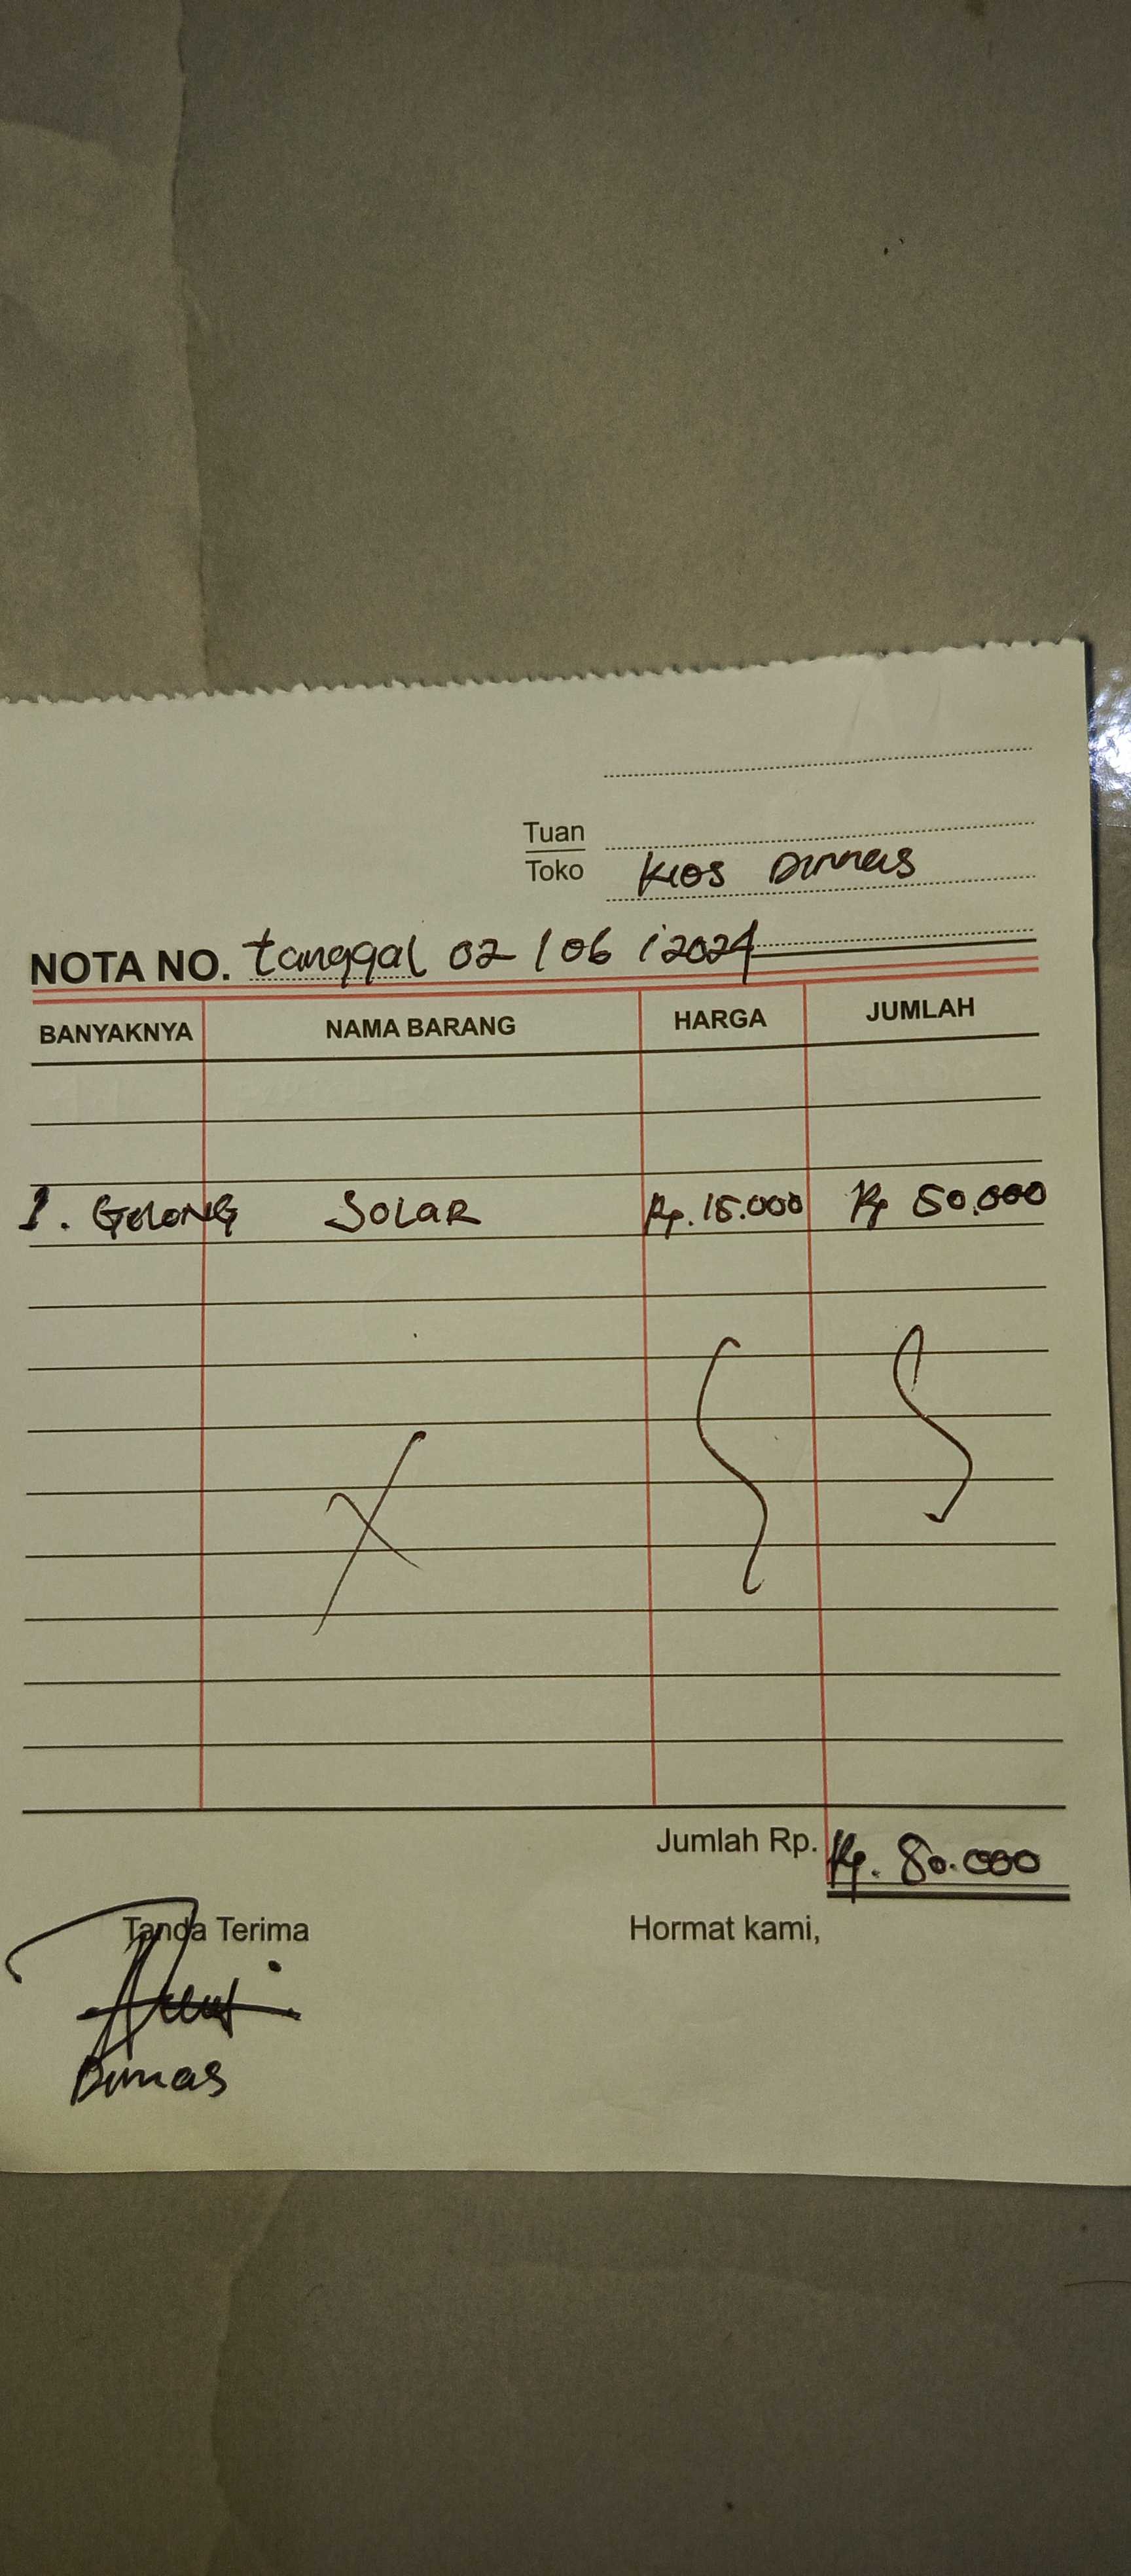 Tuan
Toko Kios Dimas
NOTA NO. tanggal 02/06/2024
BANYAKNYA NAMA BARANG HARGA JUMLAH
1. GELONG SOLAR Rp. 15.000 Rp 80.000
Jumlah Rp. Rp. 80.000
Tanda Terima Hormat kami,
Dimas